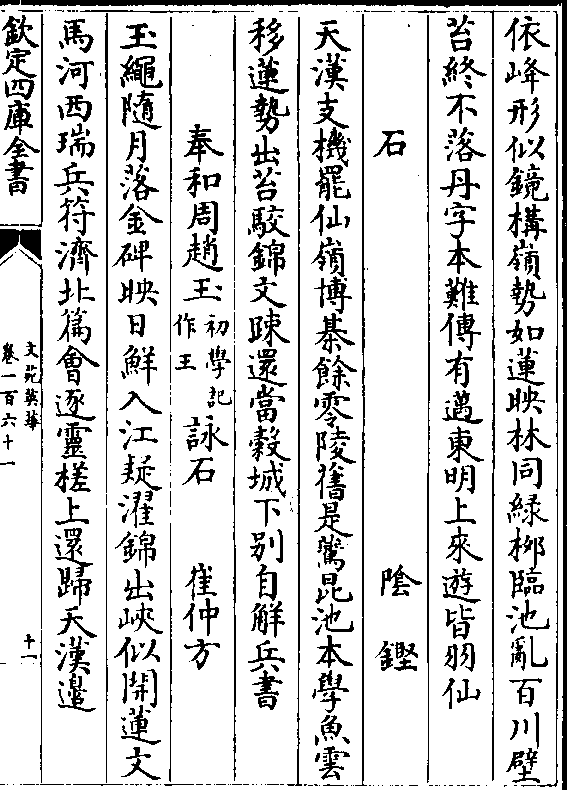 依峰形似鏡構嶺勢如蓮映林同緑栁臨池亂百川壁
苔終不落丹字本難傳有邁東明上來遊皆羽仙
石　隂鏗
天漢支機罷仙嶺博棊餘零陵舊是鷰昆池本學魚雲
移蓮勢出苔駮錦文踈還當榖城下别自解兵書
奉和周趙玉初學記作王詠石　崔仲方
玉繩隨月落金碑映日鮮入江疑濯錦出峽似開蓮文
馬河西瑞兵符濟北篇㑹逐靈槎上還歸天漢邉
欽定四庫全書
文苑英華
卷一百六十一
十一